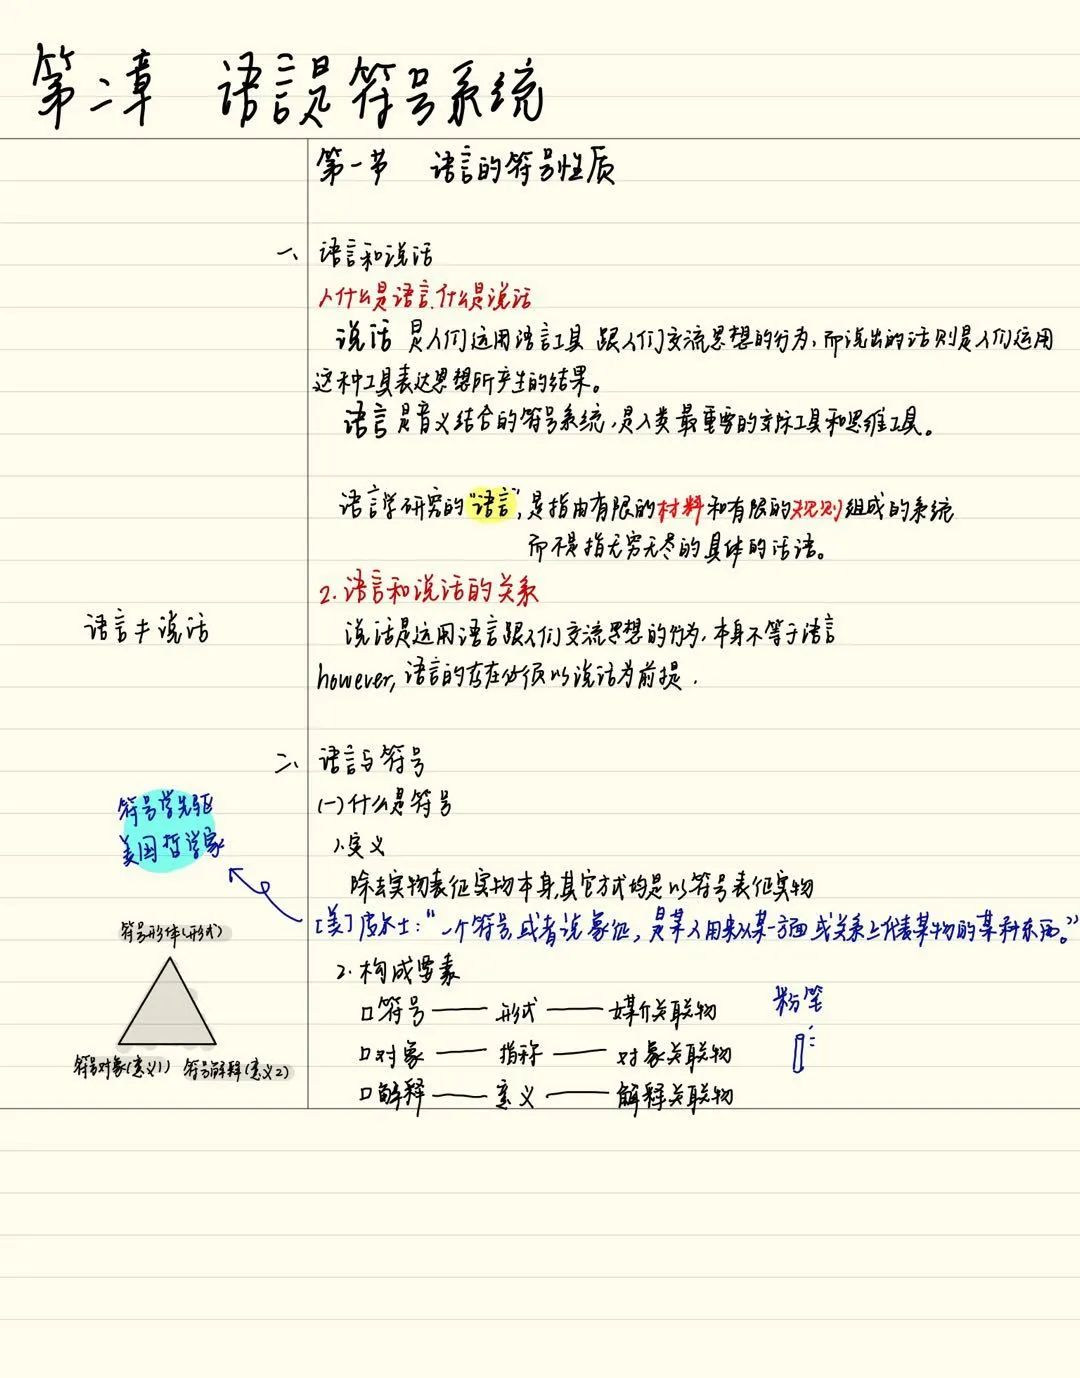 第二章 语言是符号系统
第一节 语言的符号性质
一、语言和说话
1.什么是语言、什么是说话
说话 是人们运用语言工具 跟人们交流思想的行为,而说出的话则是人们运用
这种工具表达思想所产生的结果。
语言是音义结合的符号系统,是人类最重要的交际工具和思维工具。
语言学研究的“语言”,是指由有限的材料和有限的规则组成的系统
而不是指无穷无尽的具体的话语。
2.语言和说话的关系
语言≠说话
说话是运用语言跟人们交流思想的行为,本身不等于语言
however,语言的存在必须以说话为前提.
二、语言与符号
(一)什么是符号
1.定义
除去实物表征实物本身,其它方式均是以符号表征实物
符号学先驱
美国哲学家
[美]皮尔士:“一个符号,或者说象征,是某人用来从某一方面或关系上代表某物的某种东西。”
2.构成要素
口符号——形式——媒介关联物
口对象——指称——对象关联物
口解释——意义——解释关联物
粉笔
符号形体(形式)
符号对象(意义1) 符号解释(意义2)